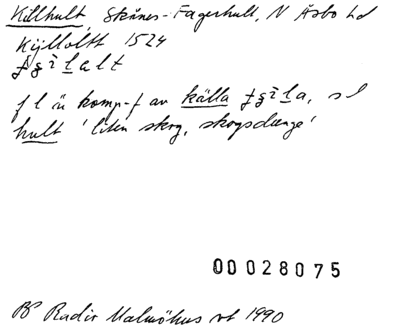 Killhult, Skånes-Fagerhult, N Åsbo hd
Kijlloltt 1524
fl är komp-f av källa, sl
hult 'liten skog, skogsdunge'
00028075
Radio Malmöhus vt 1990